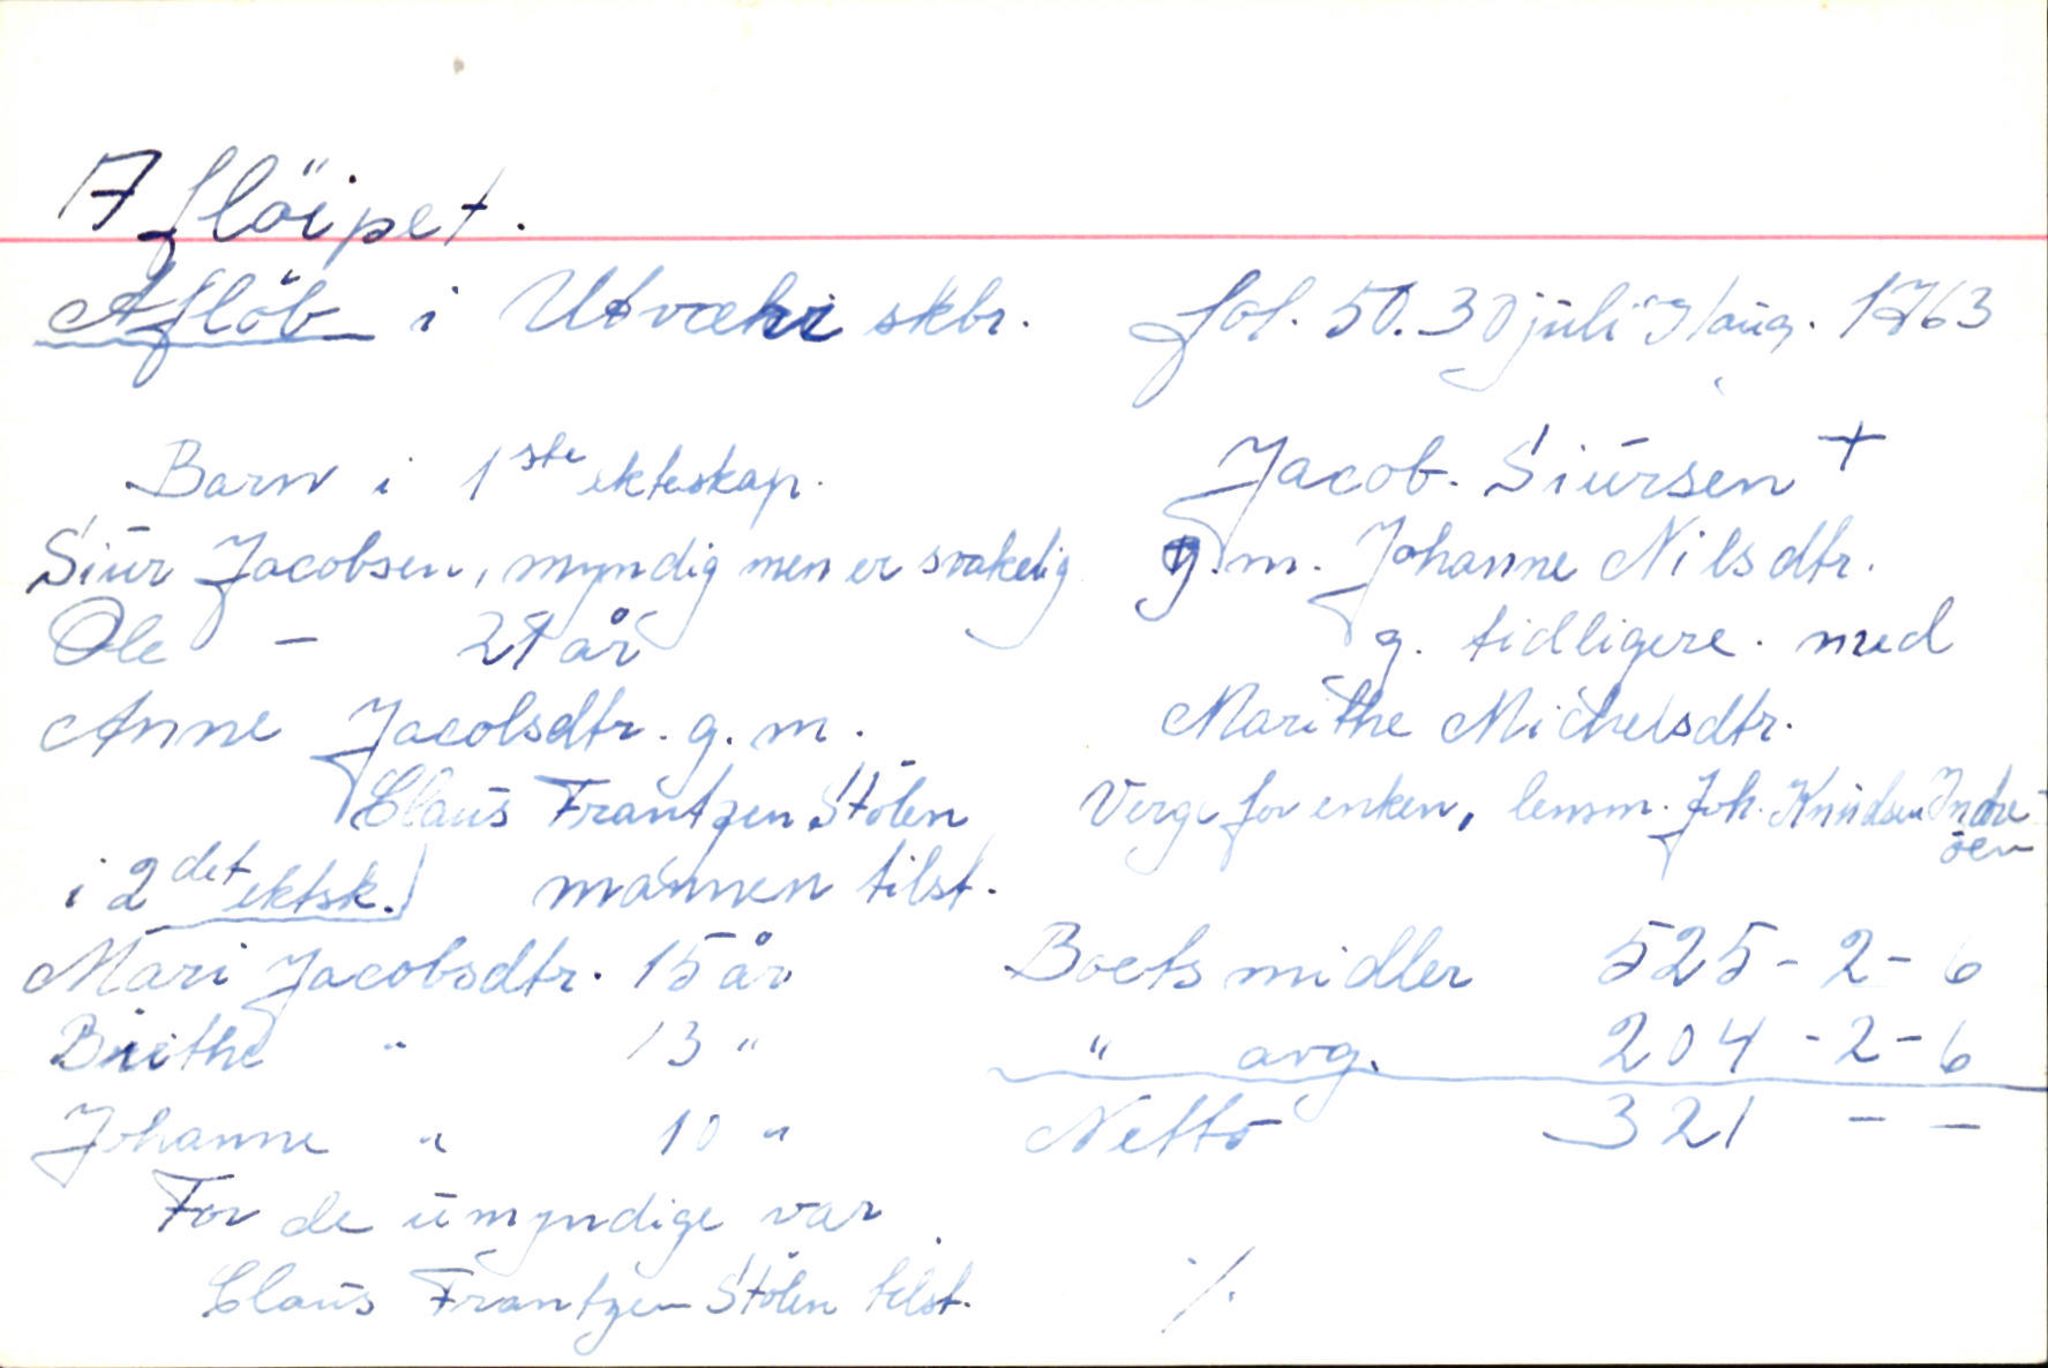 Aflöipet.
Aflöb i Utvær skbr. fol. 50. 30 juli 9/aug. 1763
Barn i 1ste ekteskap.
Siur Jacobsen, myndig men er svakelig
Ole - 21 år
Anne Jacobsdtr. g. m.
Claus Frantzen Stölen
mannen tilst.
i 2det ektsk.
Mari Jacobsdtr. 15 år
Brithe " 13 "
Johanne " 10 "
For de umyndige var
Claus Frantzen Stölen tilst.
Jacob Siursen +
g. m. Johanne Nilsdtr.
g. tidligere med
Marithe Michelsdtr.
Verge for enken, lensm. Joh. Knudsen Indre-
öen
Boets midler 525 - 2 - 6
" avg. 204 - 2 - 6
Netto 321 - -
./.